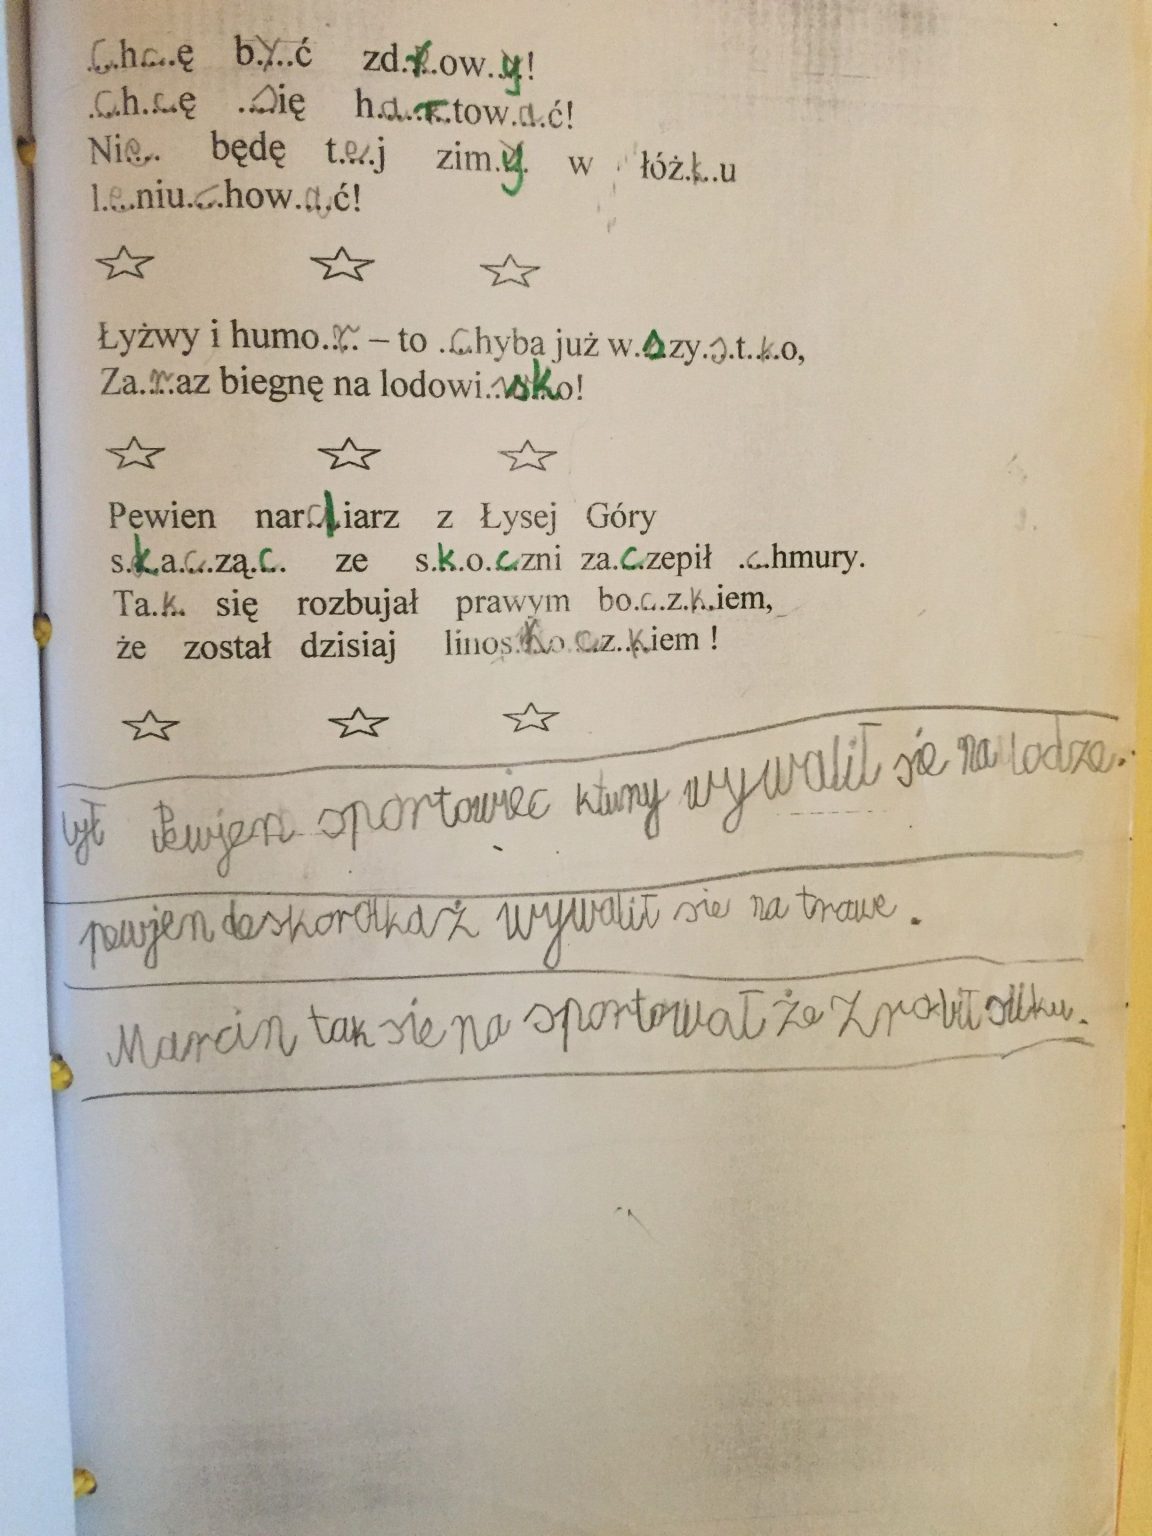 .C.h.c.ę b.y.ć zd.r.ow.y.!
.C.h.c.ę ..się h.a..r.tow.a.ć!
Nie.. będę t.e.j zim.y. w łóż.k.u
l.e.niu.c.how.a.ć!
Łyżwy i humo..r. – to .chyba już w.s.zy.s.t.k.o,
Za.r.az biegnę na lodowi..sk.o!
Pewien nar.c.iarz z Łysej Góry
s.k.a.c.zą.c. ze s.k.o.c.zni za.c.zepił .c.hmury.
Ta.k. się rozbujał prawym bo.c.z.k.iem,
że został dzisiaj linos.k.o.c.z.k.iem !
był Pewjen sportowiec ktury wywalił się na lodze.
pewjen deskorolkaż wywalił sie na trawe.
Marcin tak sie na sportował że zrobił siku.